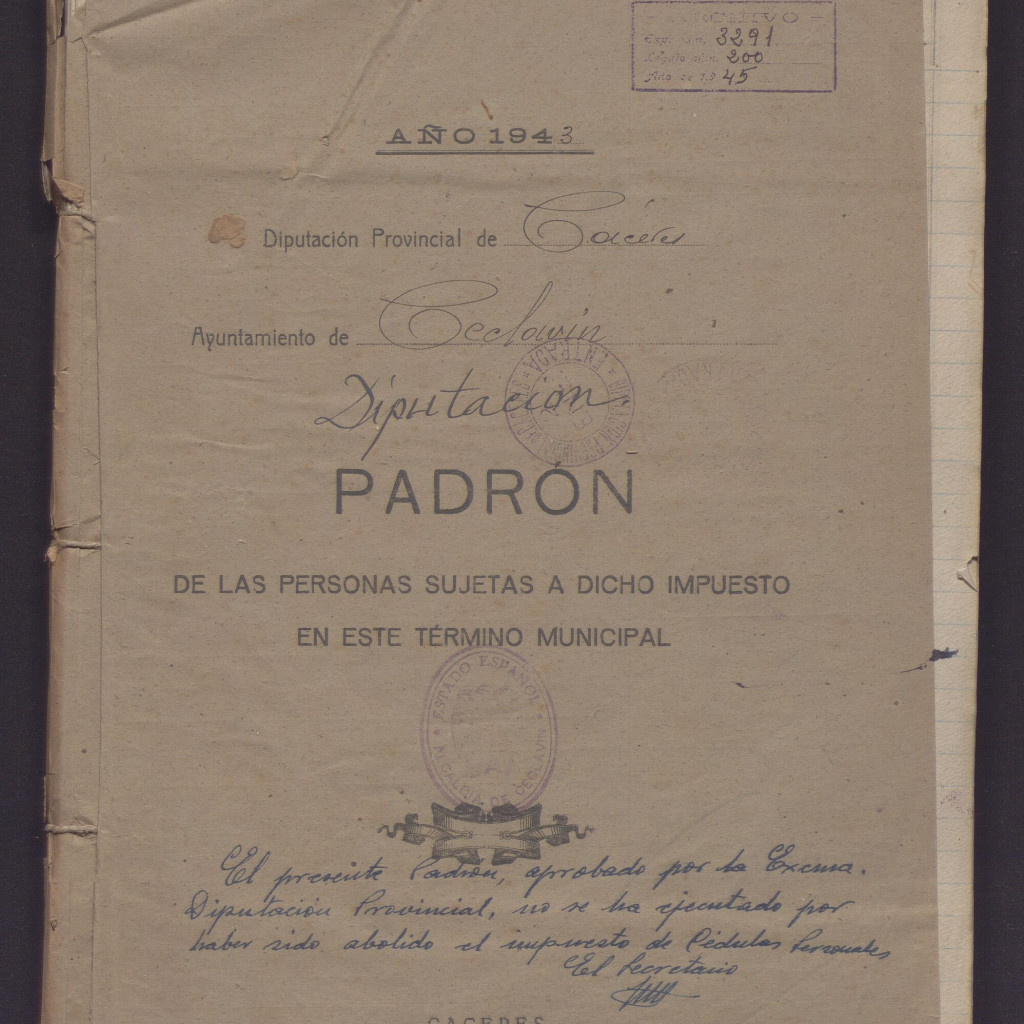 ARCHIVO
Exp. núm. 3291
Legajo núm. 200
Año de 19 45
AÑO 1943
Diputación Provincial de Cáceres
Ayuntamiento de Ceclavin
ENTRADA
Diputación
PADRÓN
DE LAS PERSONAS SUJETAS A DICHO IMPUESTO
EN ESTE TÉRMINO MUNICIPAL
ESTADO ESPAÑOL
ALCALDIA DE CECLAVIN
El presente Padrón, aprobado por la Excma.
Diputación Provincial, no se ha ejecutado por
haber sido abolido el impuesto de Cédulas Personales
El Secretario
CACERES